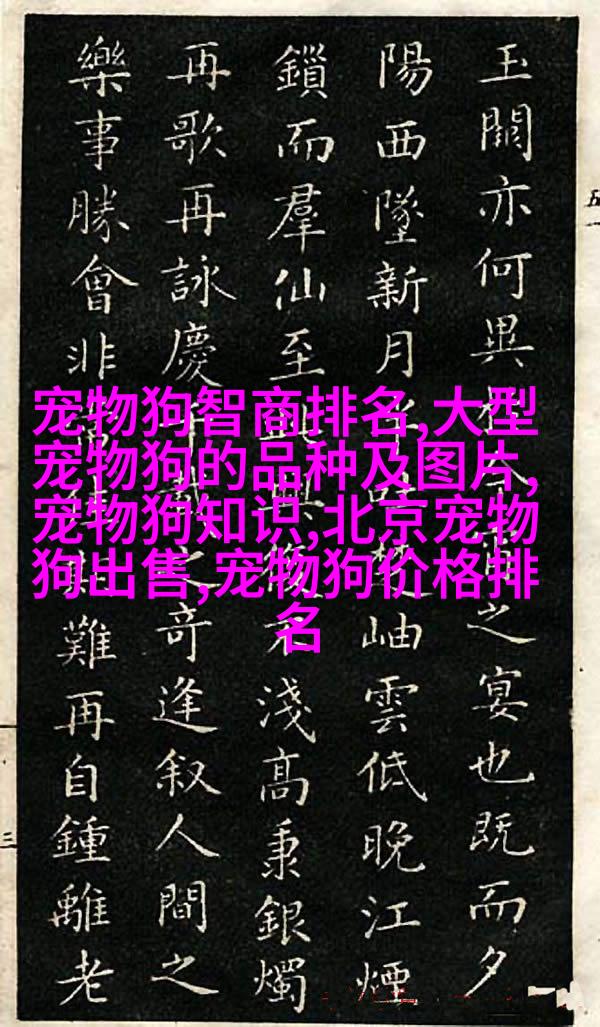 宠物狗智商排名,大型
宠物狗的品种及图片,
宠物狗知识,北京宠物
狗出售,宠物狗价格排
名
玉闕亦何異今宵之宴也既而夕
陽西墜新月半吐楚岫雲低晚江煙
鎖而羣仙至興復不淺高秉銀燭
再歌再詠慶千載之奇逢叙人間之
樂事勝會非難再自鍾離老
五一
三